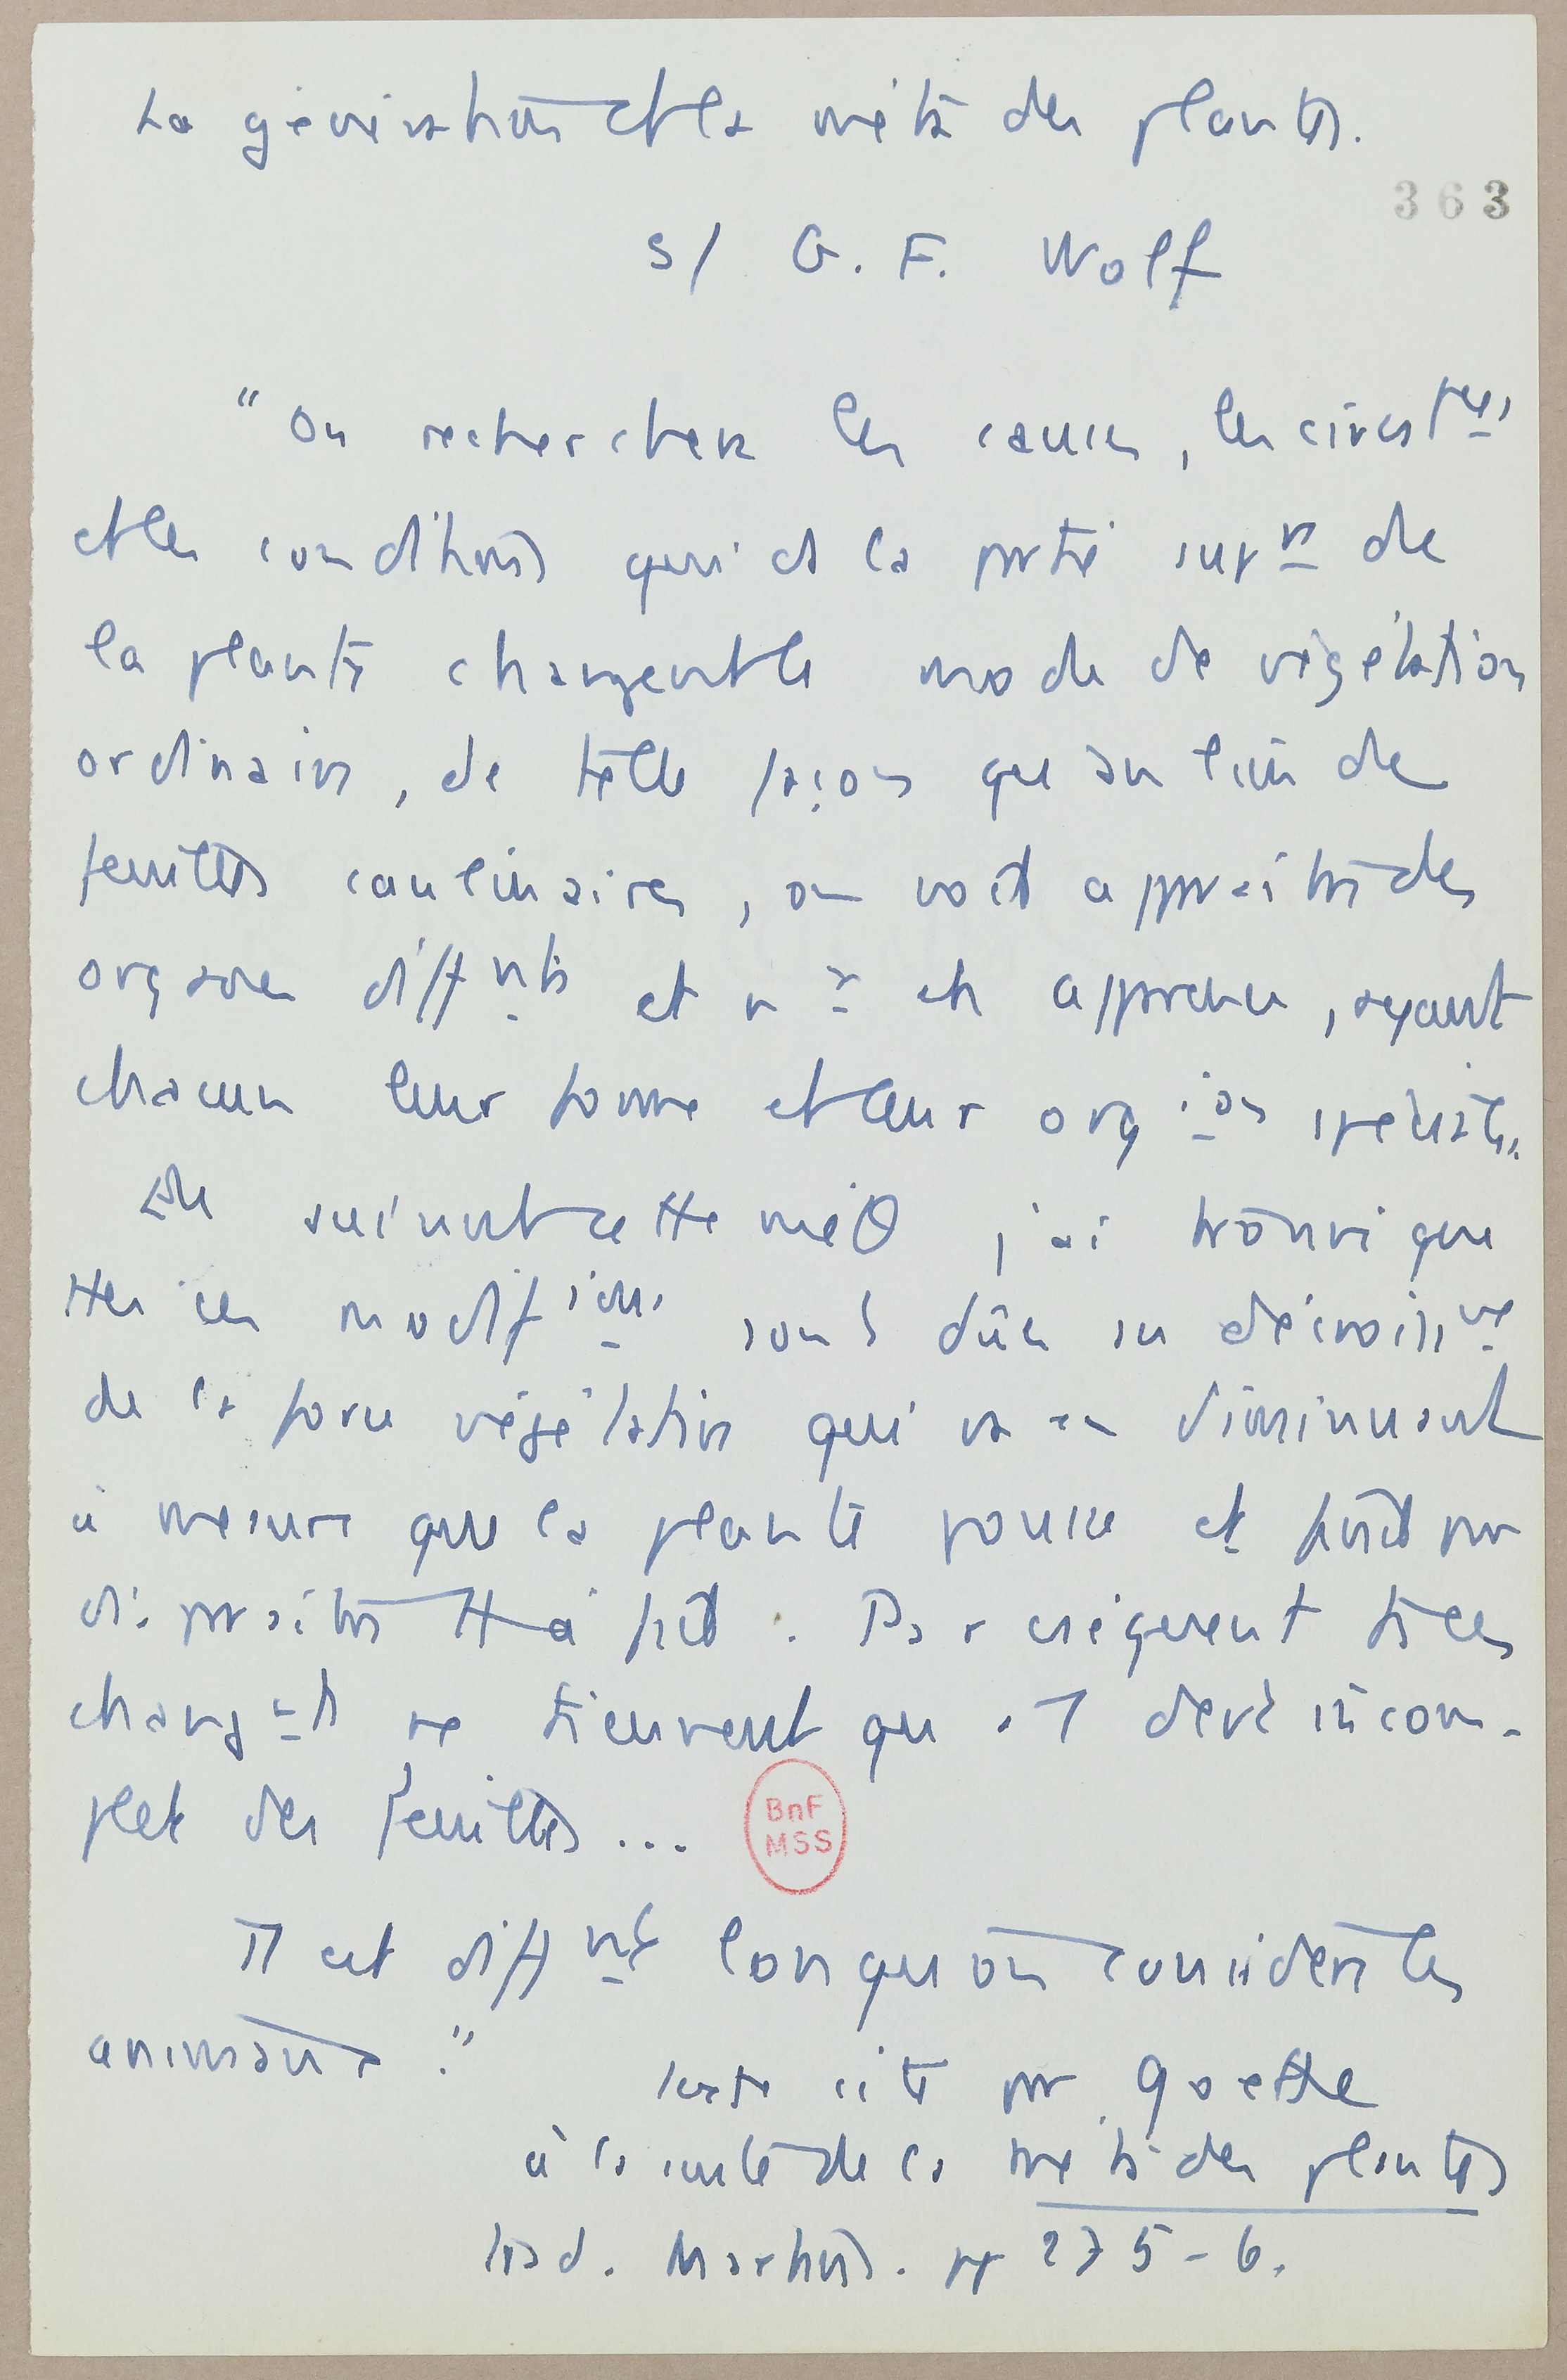 La génération et la méta des plantes.
363
s/ G. F. Wolf
" On recherchera les causes, les circsces
et les conditions qui ds la partie supre de
la plante changent le mode de végétation
ordinaire, de telle façon que au lieu de
feuilles caulinaires, on voit apparaître des
organes diffnts et nx en apparence, ayant
chacun leur forme et leur orgion spéciale.
En suivant cette méθ j'ai trouvé que
ttes ces modifions sont dûes au décroissmt
de la force végétative qui va en diminuant
à mesure que la plante pousse et finit par
disparaître tt à fait. Par cséquent ts ces
changnts ne tiennent qu'au devt incom-
plet des feuilles ...
Il est diffnt lorsqu'on considère les
animaux."
texte cité par Goethe
à la suite de la méta des plantes
trad. Martins. pp 275-6.
BnF
MSS